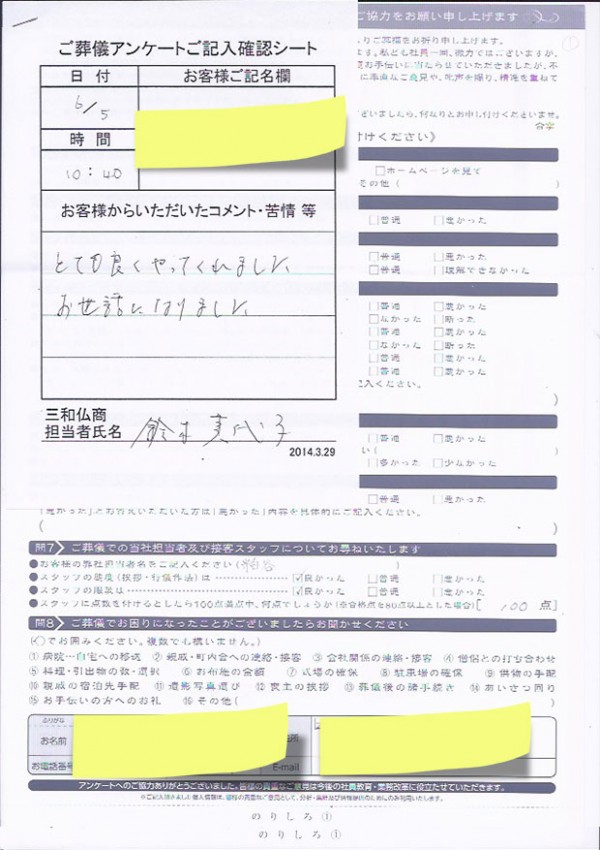 ご協力をお願い申し上げます
ご葬儀アンケートご記入確認シート
日付
お客様ご記名欄
6/5
時間
10:40
お客様からいただいたコメント・苦情 等
とても良くやってくれました
お世話になりました
三和仏商
担当者氏名
2014.3.29
付けください》
□ホームページを見て
その他（
□普通 □悪かった
□普通 □悪かった
□普通 □理解できなかった
□普通 □悪かった
□なかった □断った
□普通 □悪かった
□なかった □断った
□普通 □悪かった
□普通 □悪かった
記入ください。
□普通 □悪かった
□多かった □少なかった
□普通 □悪かった
「悪かった」とお答えいただいた方は「悪かった」内容を具体的にご記入ください。
問7 ご葬儀での当社担当者及び接客スタッフについてお尋ねいたします
●お客様の弊社担当者名をご記入ください（粕谷）
●スタッフの態度（挨拶・行儀作法）は ☑良かった □普通 □悪かった
●スタッフの服装は ☑良かった □普通 □悪かった
●スタッフに点数を付けるとしたら100点満点中、何点でしょうか（※合格点を80点以上とした場合）[100 点]
問8 ご葬儀でお困りになったことがございましたらお聞かせください
（○でお囲みください。複数でも構いません。）
①病院…自宅への移送 ②親戚・町内会への連絡・接客 ③会社関係の連絡・接客 ④僧侶との打ち合わせ
⑤料理・引出物の数・選択 ⑥お布施の金額 ⑦式場の確保 ⑧駐車場の確保 ⑨供物の手配
⑩親戚の宿泊先手配 ⑪遺影写真選び ⑫喪主の挨拶 ⑬葬儀後の諸手続き ⑭あいさつ回り
⑮お手伝いの方へのお礼 ⑯その他（
ふりがな
お名前
お電話番号
E-mail
アンケートへのご協力ありがとうございました。皆様の貴重なご意見は今後の社員教育・業務改革に役立たせていただきます。
のりしろ①
のりしろ①